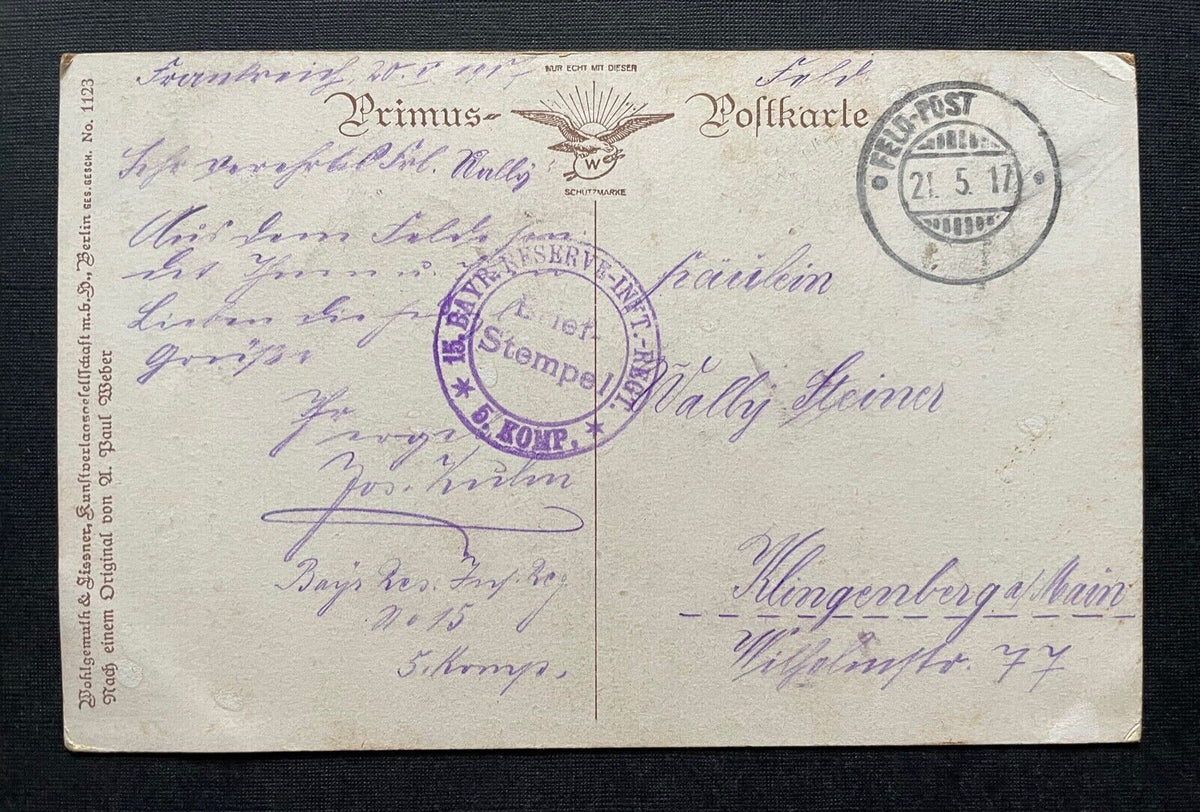 Frankreich, 20. V 1917
Feld
NUR ECHT MIT DIESER
Primus-
Poſtkarte
W
SCHUTZMARKE
FELD-POST
21. 5. 17
Sehr verehrtes Frl. Wally
Aus dem Felde sen-
det Ihnen u. Ihren
Lieben die
Grüße
Ihr
Jos. Kuhn
Bayr Res. Inf. Reg
No 15
5. Komp.
15. BAYR. RESERVE-INFT.-REGT.
Brief-
Stempel
* 5. KOMP. *
Fräulein
Wally Steiner
Klingenberg a/Main
Wilhelmstr. 77
Wohlgemuth & Lissner, Kunſtverlagsgeſellſchaft m. b. H., Berlin GES. GESCH. No. 1123
Nach einem Original von A. Paul Weber